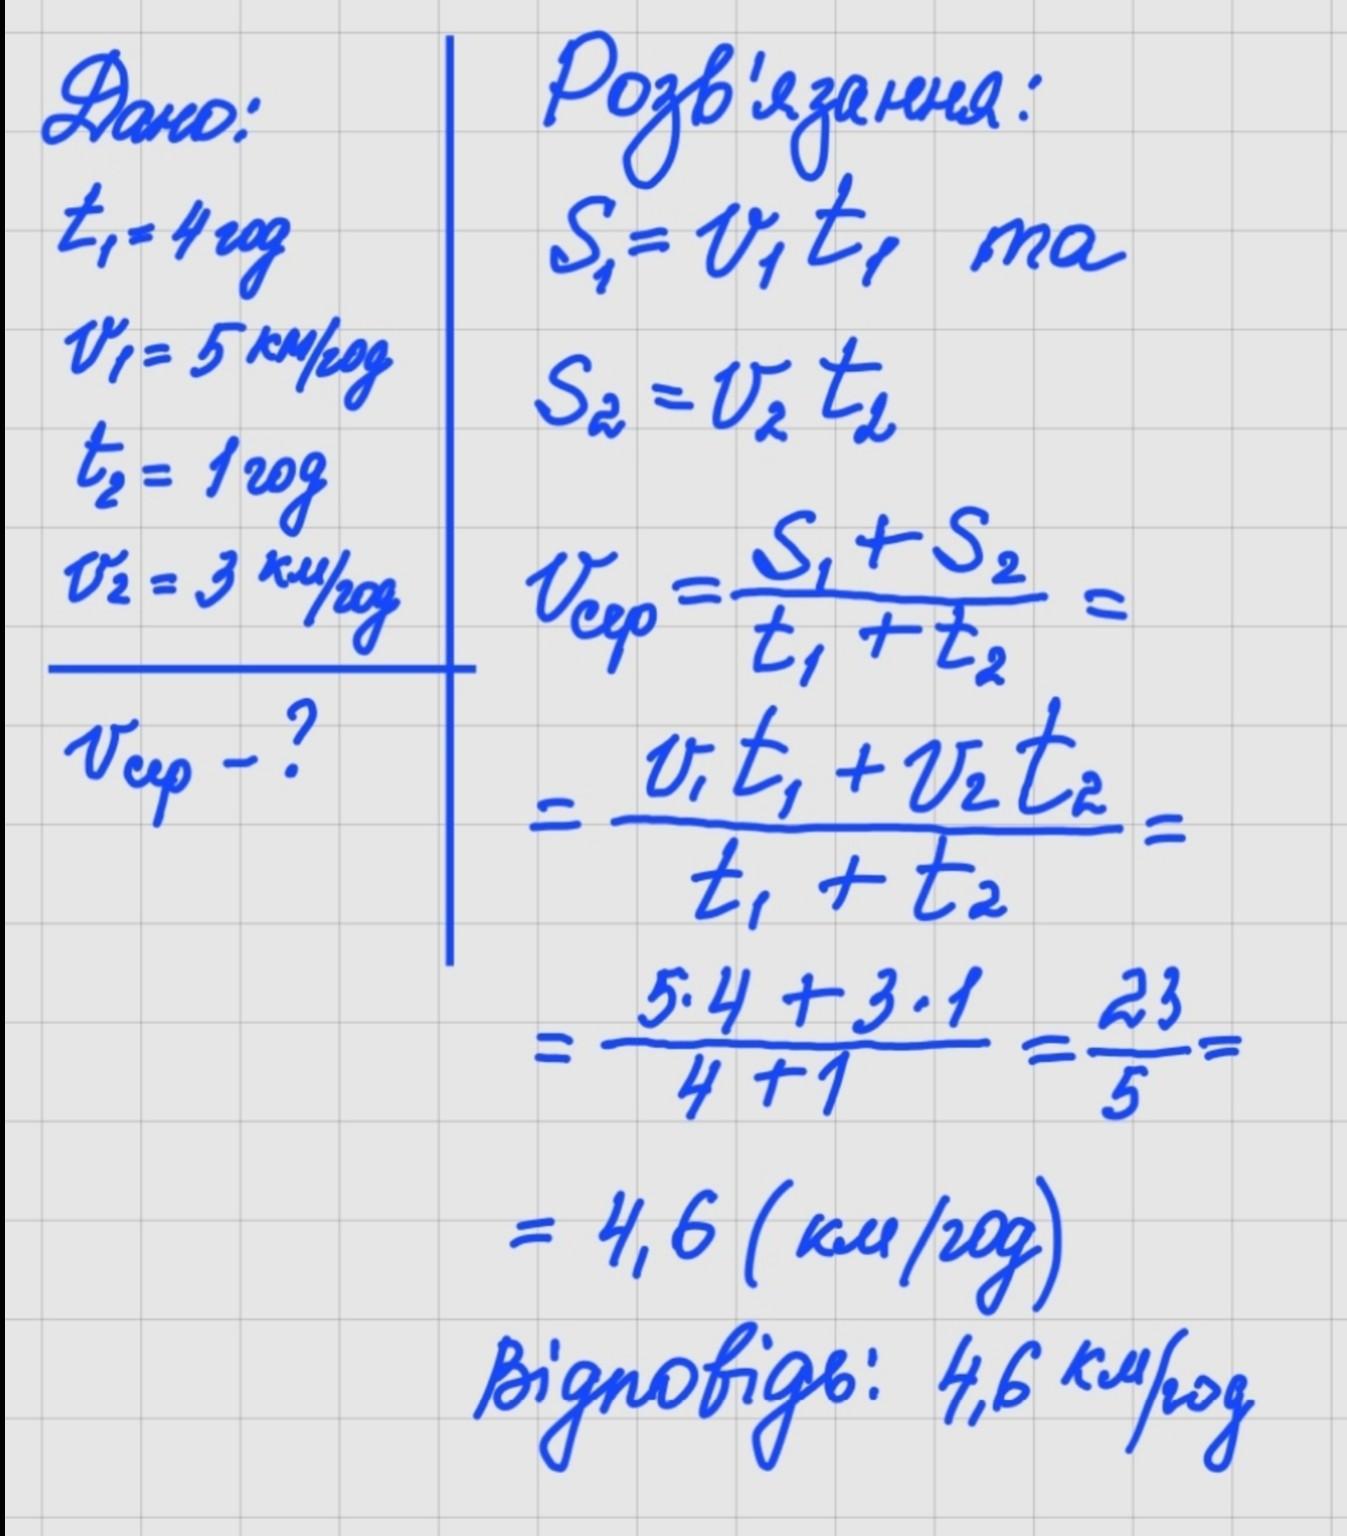 Дано:
t₁ = 4 год
v₁ = 5 км/год
t₂ = 1 год
v₂ = 3 км/год
vсер - ?
Розв'язання:
S₁ = v₁ t₁ та
S₂ = v₂ t₂
vсер = (S₁ + S₂)/(t₁ + t₂) =
= (v₁ t₁ + v₂ t₂)/(t₁ + t₂) =
= (5·4 + 3·1)/(4 + 1) = 23/5 =
= 4,6 (км/год)
Відповідь: 4,6 км/год